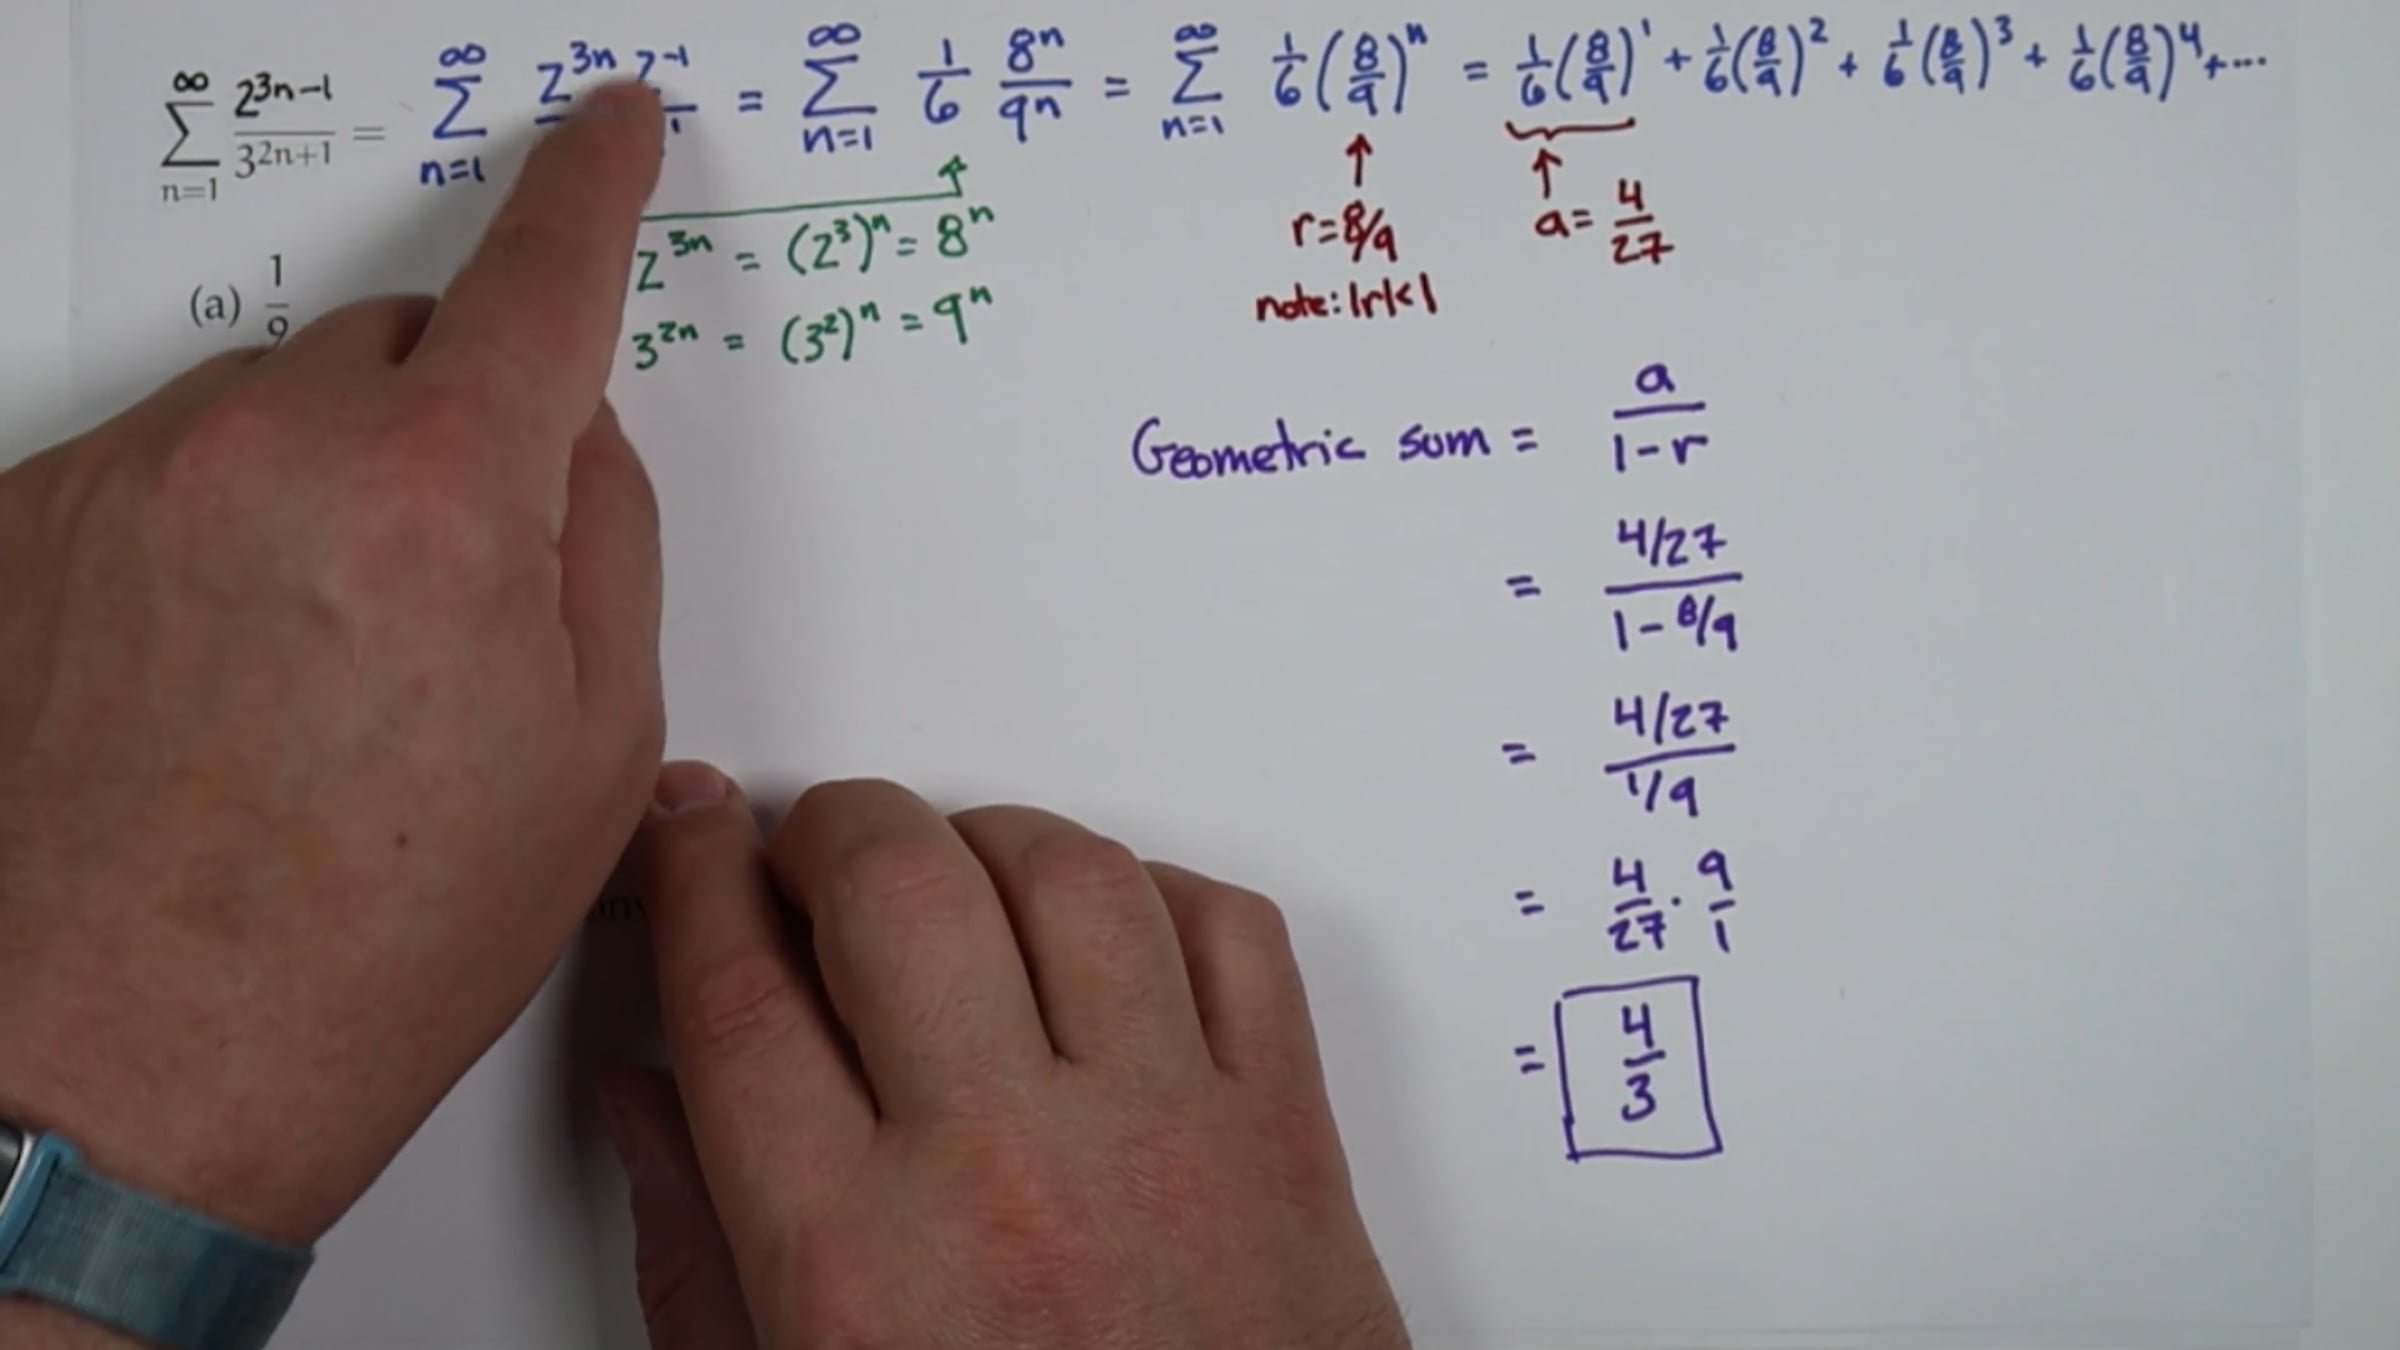 ∞ ∑ n=1 2^{3n-1} / 3^{2n+1} = ∞ ∑ n=1 2^{3n} 2^{-1} = ∞ ∑ n=1 1/6 8^n/9^n = ∞ ∑ n=1 1/6 (8/9)^n = 1/6(8/9)^1 + 1/6(8/9)^2 + 1/6(8/9)^3 + 1/6(8/9)^4 + ...
2^{3n} = (2^3)^n = 8^n
r = 8/9
a = 4/27
(a) 1/9
3^{2n} = (3^2)^n = 9^n
note: |r| < 1
Geometric sum = a / 1-r
= 4/27 / 1-8/9
= 4/27 / 1/9
= 4/27 · 9/1
= 4/3